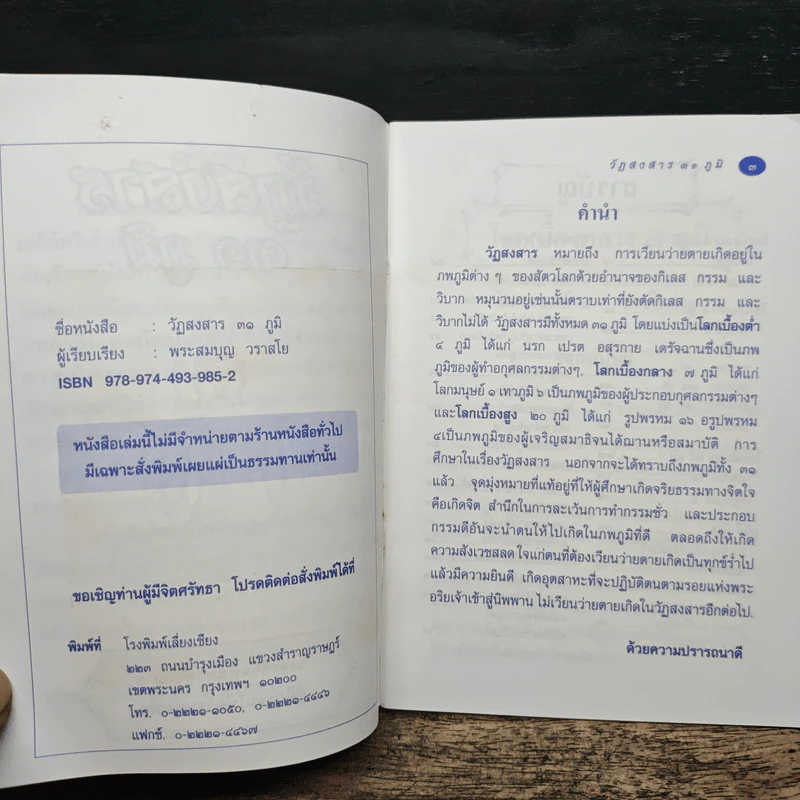 ชื่อหนังสือ : วัฏสงสาร ๓๑ ภูมิ
ผู้เรียบเรียง : พระสมบุญ วราสโย
ISBN 978-974-493-985-2
หนังสือเล่มนี้ไม่มีจำหน่ายตามร้านหนังสือทั่วไป
มีเฉพาะสั่งพิมพ์เผยแผ่เป็นธรรมทานเท่านั้น
ขอเชิญท่านผู้มีจิตศรัทธา โปรดติดต่อสั่งพิมพ์ได้ที่
พิมพ์ที่ โรงพิมพ์เลี่ยงเชียง
๒๒๓ ถนนบำรุงเมือง แขวงสำราญราษฎร์
เขตพระนคร กรุงเทพฯ ๑๐๒๐๐
โทร. ๐-๒๒๒๑-๑๐๕๐, ๐-๒๒๒๑-๔๔๔๖
แฟกซ์. ๐-๒๒๒๑-๔๔๖๗
วัฏสงสาร ๓๑ ภูมิ ๓
คำนำ
วัฏสงสาร หมายถึง การเวียนว่ายตายเกิดอยู่ใน
ภพภูมิต่าง ๆ ของสัตวโลกด้วยอำนาจของกิเลส กรรม และ
วิบาก หมุนวนอยู่เช่นนั้นตราบเท่าที่ยังตัดกิเลส กรรม และ
วิบากไม่ได้ วัฏสงสารมีทั้งหมด ๓๑ ภูมิ โดยแบ่งเป็นโลกเบื้องต่ำ
๔ ภูมิ ได้แก่ นรก เปรต อสุรกาย เดรัจฉานซึ่งเป็นภพ
ภูมิของผู้ทำอกุศลกรรมต่างๆ, โลกเบื้องกลาง ๗ ภูมิ ได้แก่
โลกมนุษย์ ๑ เทวภูมิ ๖ เป็นภพภูมิของผู้ประกอบกุศลกรรมต่างๆ
และโลกเบื้องสูง ๒๐ ภูมิ ได้แก่ รูปพรหม ๑๖ อรูปพรหม
๔เป็นภพภูมิของผู้เจริญสมาธิจนได้ฌานหรือสมาบัติ การ
ศึกษาในเรื่องวัฏสงสาร นอกจากจะได้ทราบถึงภพภูมิทั้ง ๓๑
แล้ว จุดมุ่งหมายที่แท้อยู่ที่ให้ผู้ศึกษาเกิดจริยธรรมทางจิตใจ
คือเกิดจิต สำนึกในการละเว้นการทำกรรมชั่ว และประกอบ
กรรมดีอันจะนำตนให้ไปเกิดในภพภูมิที่ดี ตลอดถึงให้เกิด
ความสังเวชสลด ใจแก่ตนที่ต้องเวียนว่ายตายเกิดเป็นทุกข์ร่ำไป
แล้วมีความยินดี เกิดอุตสาหะที่จะปฏิบัติตนตามรอยแห่งพระ
อริยเจ้าเข้าสู่นิพพาน ไม่เวียนว่ายตายเกิดในวัฏสงสารอีกต่อไป.
ด้วยความปรารถนาดี